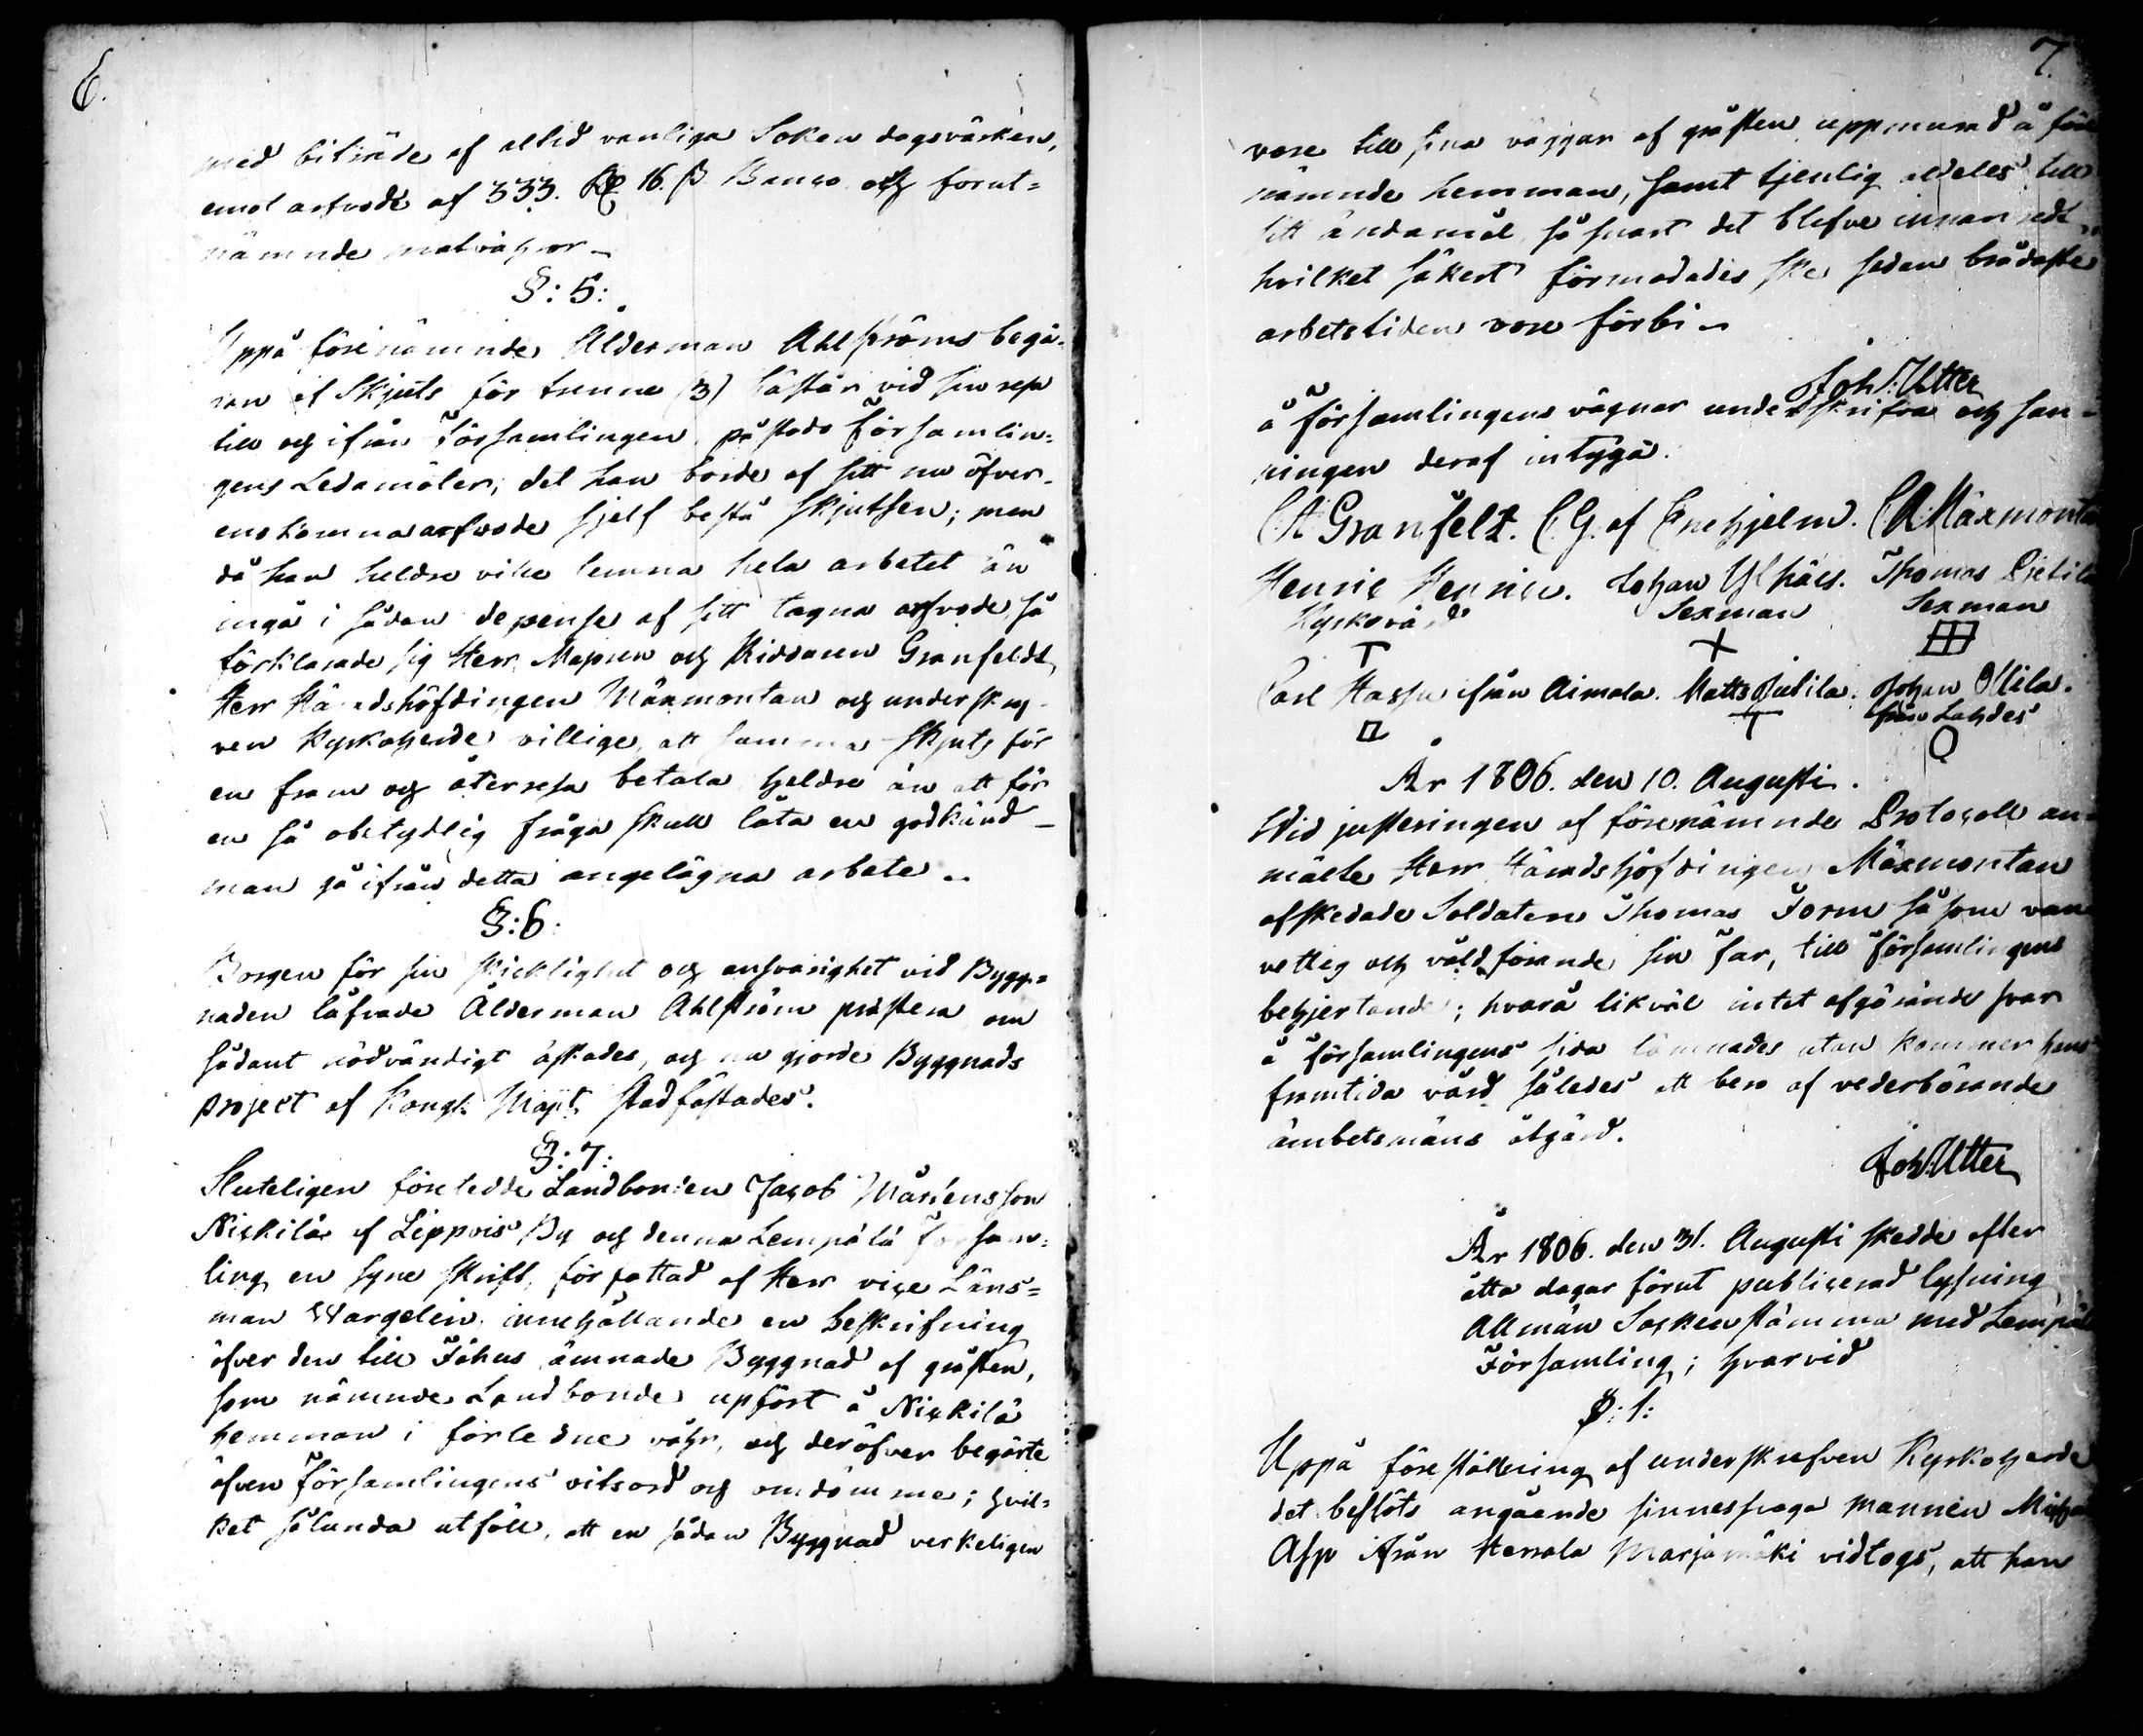 6.
med biträde af altid vanliga Soken dagsvärken,
emot arfvode af 333. Rd 16. ß Banco och forut=
nämnde matvahror
§: 5:
Uppå förenämnde Ålderman Ahlströms begä-
ran af Skjuts för trenne (3) hästar vid sin resa
till och ifrån Församlingen, påstodo Församlin=
gens Ledamöter, det han borde af sitt nu öfver-
enskomna arfvode sjelf bestå skjutsen; men
då han heldre ville lemna hela arbetet än
ingå i sådan depense af sitt tagna arfvode, så
förklarade sig Herr Majoren och Riddaren Granfeldt,
Herr Häradshöfdingen Mäxmontan och underskref-
ven Kyrkoherde villige, att samma skjuts för
en fram och återresa betala heldre än att för
en så obetydlig fråga skull låta en godkänd
man gå ifrån detta angelägna arbete
§: 6.
Borgen för sin skicklighet och ansvarighet vid Bygg=
naden låfvade Ålderman Ahlström prestera om
sådant nödvändigt äskades, och nu gjorde Byggnads
project af Kongl. Maj:t stadfästades.
§: 7:
Sluteligen föreledde Landbonden Jacob Mårtensson
Niskilä af Lippois By och denna Lempälä Försam=
ling en syne skrift, författad af Herr vice Läns=
man Wargelin, innehållande en beskrifning
öfver den till Fähus ämnade Byggnad af gråsten,
som nämnde Landbonde upfört å Niskilä
hemman i förledne våhr, och deröfver begärte
äfven Församlingens vitsord och omdömme; hvil=
ket sålunda utföll, att en sådan Byggnad verkeligen
7.
vore till sina väggar af gråsten uppmurad å före
nämnde hemman, samt tjenlig aldeles till
sitt ändamål så snart det blefve innan redt
hvilket säkert förmodades ske sedan brådaste
arbetstiden vore förbi
Joh: Utter
å Församlingens vägnar underskrifva och san-
ningen deraf intyga.
C A Granfelt. C. G. af Enehjelm. C A Mäxmontan
Henric Henrici. Johan Ylhäis. Thomas Pietilä
Kyrkovärd Sexman Sexman
Carl Hassu ifrån Aimala. Matts Jutila. Johan Ollila.
från Lahdes
År 1806. den 10. Augusti.
Wid justeringen af förenämnde Protocoll an-
mälte Herr Häradshöfdingen Mäxmontan
afskedade Soldaten Thomas Form såsom van
vettig och våldförande sin far, till församlingens
behjertande; hvarå likväl intet afgörande svar
å församlingens sida lämnades utan kommer hans
framtida vård således att bero af vederbörande
ämbetsmäns åtgärd.
Joh: Utter
År 1806. den 31. Augusti skedde efter
åtta dagar förut publicerad lysning
Allmän Sockenstämma med Lempälä
Församling; hvarvid
§: 1:
Uppå föreställning af underskrefven Kyrkoherde
det beslöts angående sinnessvaga mannen
Asp ifrån Herrala Marjamäki vidtogs, att han